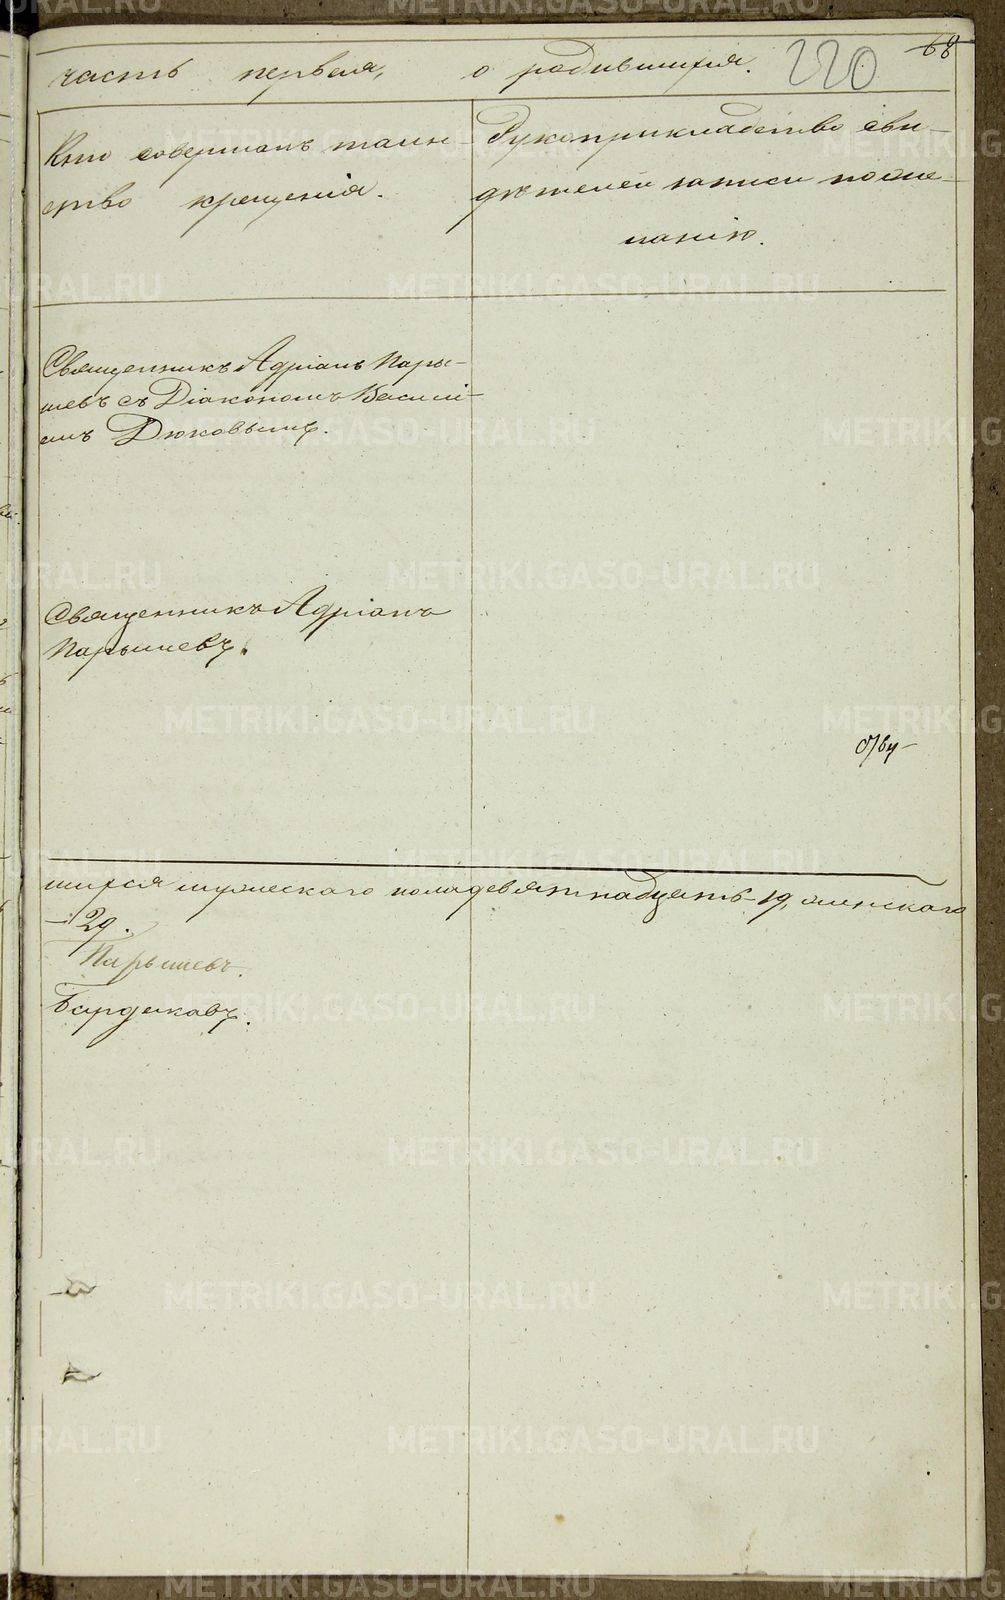 68
220
часть первая, о родившихся.
Кто совершалъ таин-
ство крещенія.
Рукоприкладство сви-
дѣтелей записи по же-
ланію.
Священникъ Адріанъ Пары-
шевъ съ Діакономъ Василі-
емъ Дюковымъ.
Священникъ Адріанъ
Парышевъ.
шихся мужескаго пола девятнадцать 19, женскаго
29.
Парышевъ.
METRIKI.GASO-URAL.RU